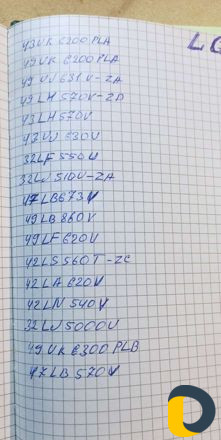 LG
43UK 6200 PLA
49UK 6200 PLA
49 UJ 631V-ZA
49 LH 570V-ZD
43 LH 570V
43 UJ 630V
32LF 550U
32LJ 510U-ZA
47 LB673V
49LB 860V
49LF 620V
42LS 560T-ZC
42 LA 620V
42LN 540V
32 LJ 5000U
49 UK 6300 PLB
47LB 570V